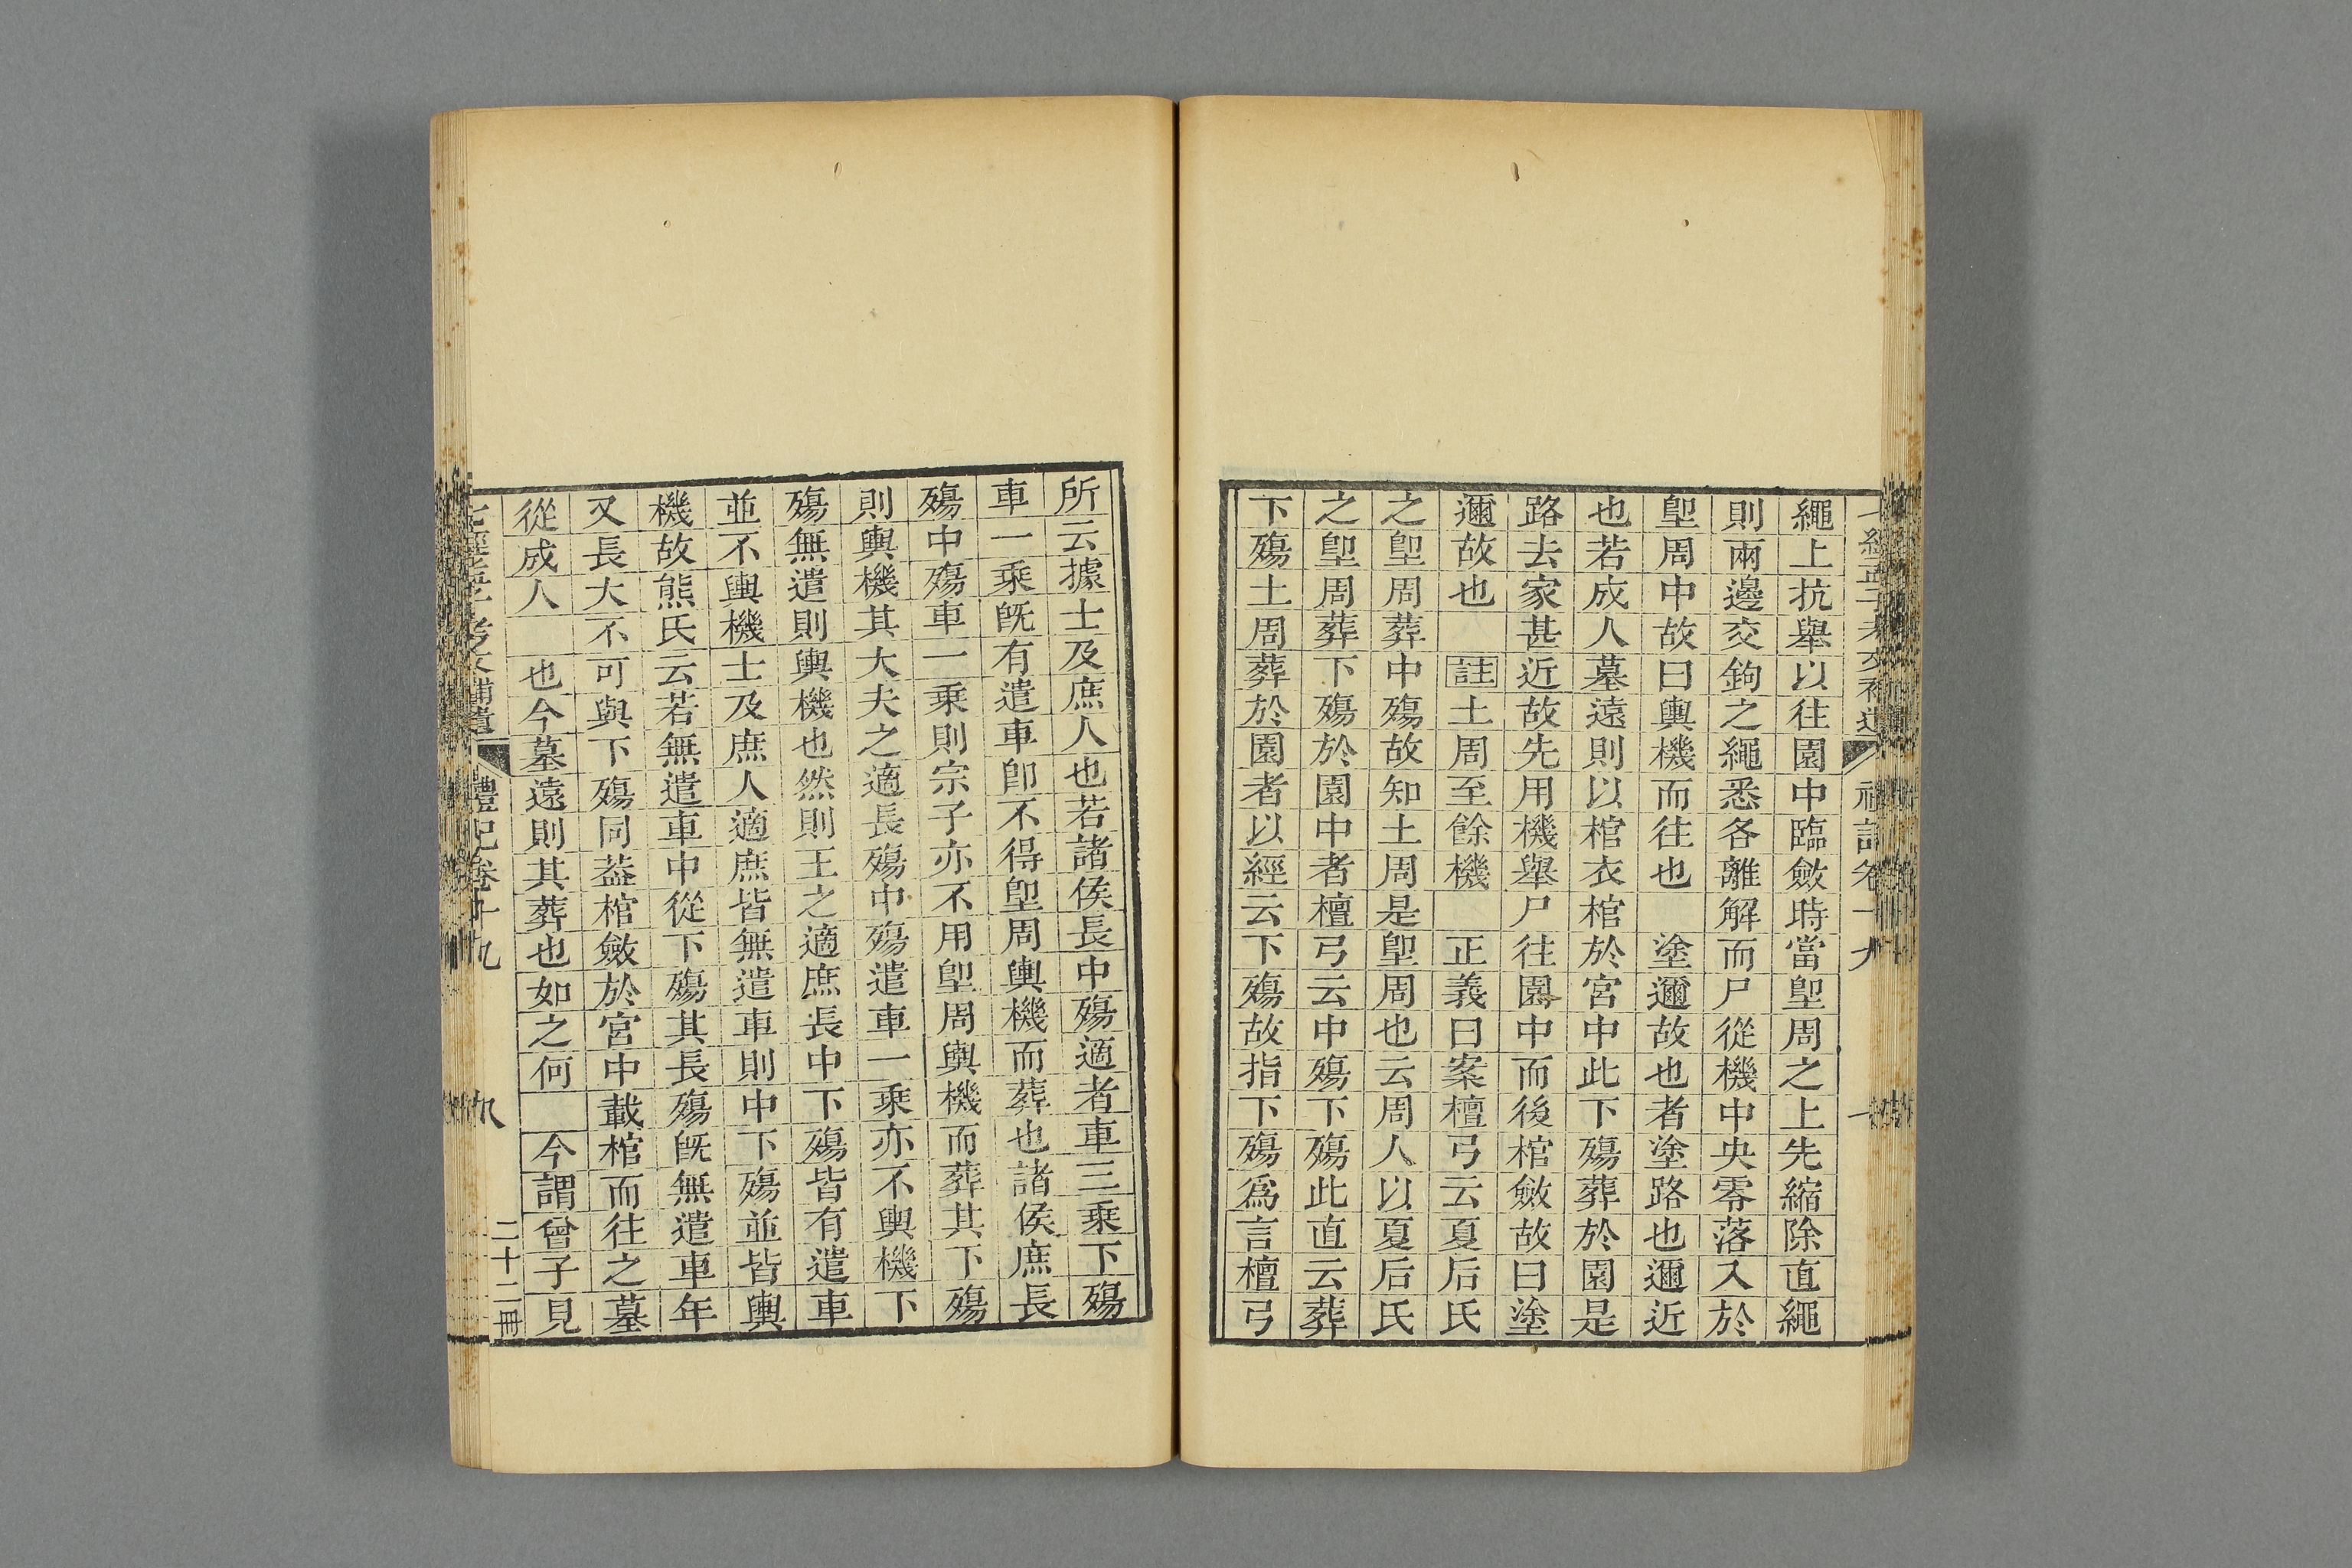 繩上抗舉以往園中臨斂時當堲周之上先縮除直繩
則兩邊交鉤之繩悉各離解而尸從機中央零落入於
堲周中故曰輿機而往也 塗邇故也者塗路也邇近
也若成人墓遠則以棺衣棺於宮中此下殤葬於園是
路去家甚近故先用機舉尸往園中而後棺斂故曰塗
邇故也 註土周至餘機 正義曰案檀弓云夏后氏
之堲周葬中殤故知土周是堲周也云周人以夏后氏
之堲周葬下殤於園中者檀弓云中殤下殤此直云葬
下殤土周葬於園者以經云下殤故指下殤爲言檀弓
所云據士及庶人也若諸侯長中殤適者車三乘下殤
車一乘旣有遣車卽不得堲周輿機而葬也諸侯庶長
殤中殤車一乘則宗子亦不用堲周輿機而葬其下殤
則輿機其大夫之適長殤中殤遣車一乘亦不輿機下
殤無遣則輿機也然則王之適庶長中下殤皆有遣車
並不輿機士及庶人適庶皆無遣車則中下殤並皆輿
機故熊氏云若無遣車中從下殤其長殤旣無遣車年
又長大不可與下殤同葢棺斂於宮中載棺而往之墓
從成人 也今墓遠則其葬也如之何 今謂曾子見
禮記卷十九 九 二十二冊